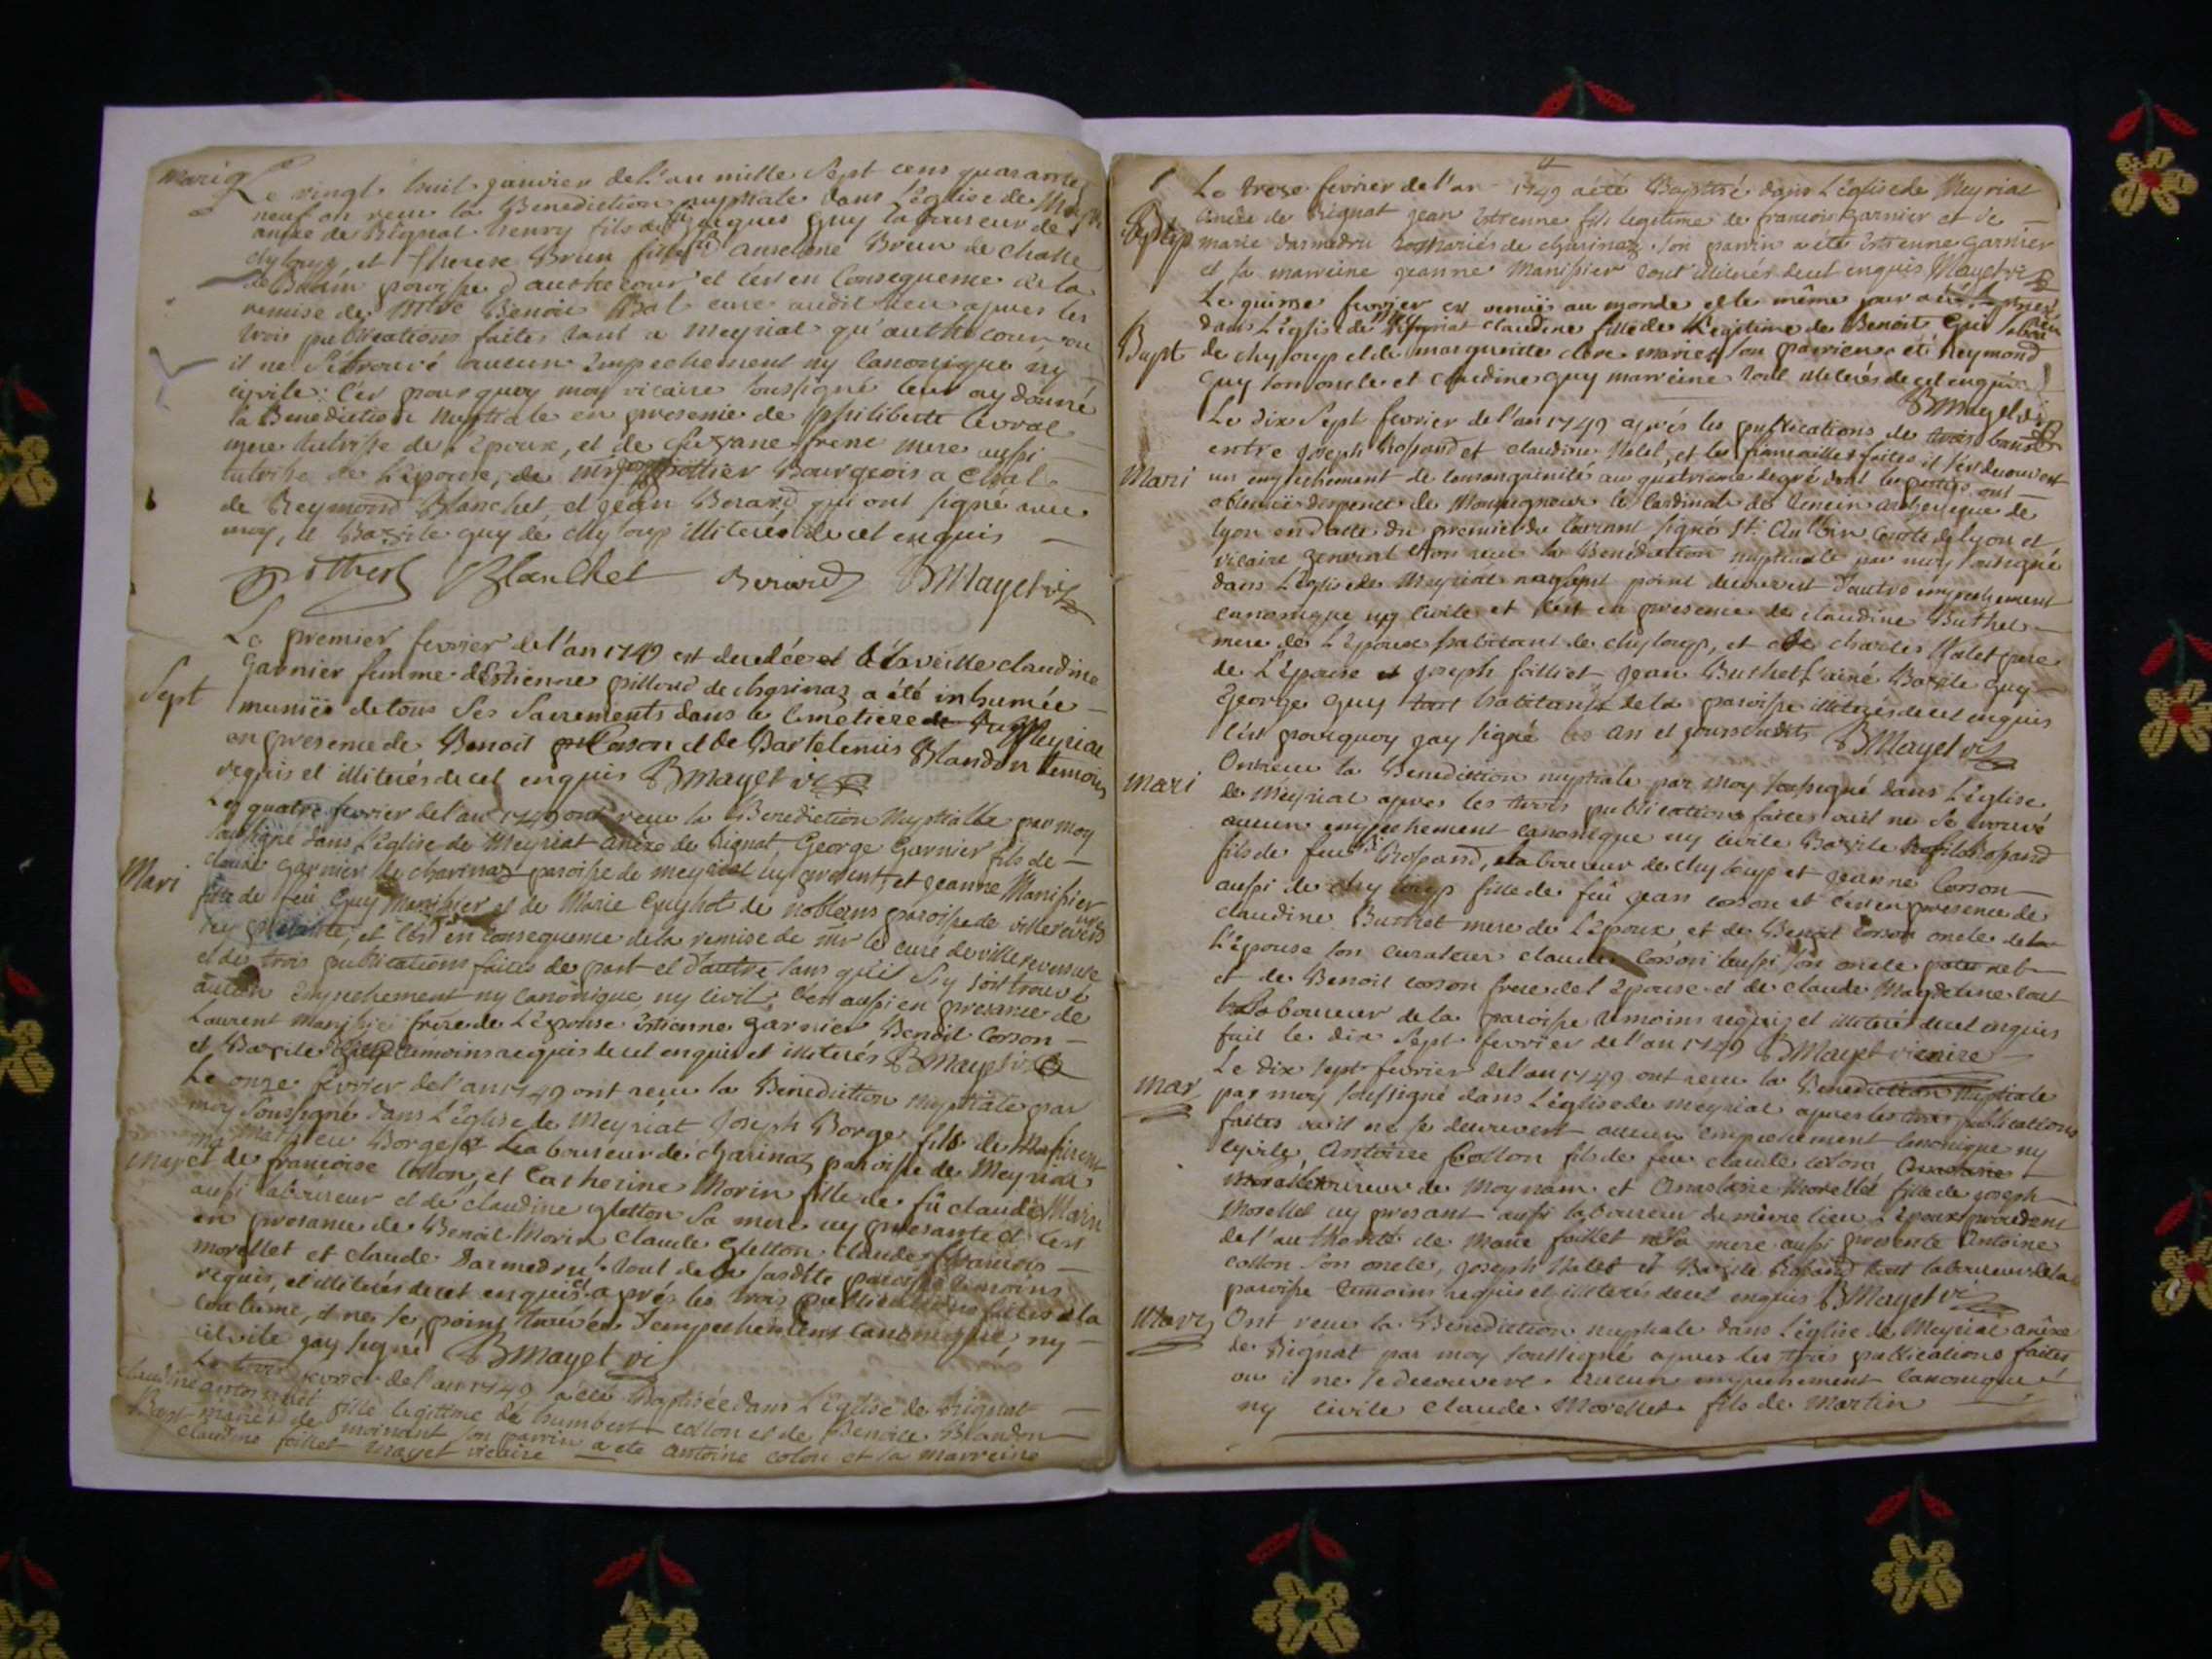 mariag Le vingt huit janvier de l'an mille sept cens quarante
neuf on receu la Benediction nuptiale dans l'église de
anèxe de Rignat henry fils de feu jacques guy laboureur de
chyloup et therese Brun fille de feu anselme Brun de
de paroisse d'authecour et c'est en consequence de la
remise de Benoit Bal curé audit lieu apres les
trois publications faites tant a Meyriat qu'authecour ou
il ne s'est trouvé aucun empechement ny canonique ny
cyvile c'est pourquoy moy vicaire soussigné leur ay donné
la Benediction nuptiale en presence de philiberte
mere tutrisse de l'epoux, et de suzane frene mere aussi
tutrise de l'epouse, de Bourgeois a
de Reymond Blanchet, et jean Berard qui ont signé avec
moy, et Bazile guy de chyloup illiteré de cet enquis
Blanchet Berard BMayet vi
Le premier fevrier de l'an 1749 est decedée et la veille claudine
garnier femme d'Estienne pilloud de charinaz a été inhumée
Sept
muniée de tous ses sacrements dans le cimetiere de Meyriat
en presence de Benoit Corson et de Bartelemis Blandon temoins
requis et illiterés de cet enquis BMayet vi
Les quatre fevrier de l'an 1749 ont receu la Benediction Nuptialle par moy
soussigné dans l'église de Meyriat anèxe de Rignat George Garnier fils de
claude garnier de charinaz paroisse de meyriat icy present, et jeanne Manissier
Mari
fille de feu Guy Manissier et de Marie Guyhot de noblens paroisse de villereversure
icy presente, et c'est en consequence de la remise de mr le curé de villereversure
et des trois publications faites de part et d'autre sans qu'il s'y soit trouvé
aucun empechement ny canonique ny civil, c'est aussi en presance de
Laurent manissier frere de l'epouse Estienne garnier Benoit Corson
et Bazile temoins requis de cet enquis et illiterés BMayet vi
Le onze fevrier de l'an 1749 ont receu la Benediction nuptiale par
moy soussigné dans l'église de Meyriat Joseph Borge fils de
mathieu Borge Laboureur de charinaz paroisse de Meyriat
mar et de francoise Collon, et Catherine Morin fille de fû claude Morin
aussi laboureur et de claudine gletton sa mere icy presante et c'est
en presance de Benoit Morin claude gletton claude francois
morellet et claude Darmedru tout de la susdite paroisse temoins
requis, et illiterés de cet enquis et après les trois publications faites a la
coutume, et ne se point trouvé d'empechement canonique, ny
civile jay signé BMayet vi
Le trois fevrier de l'an 1749 a été Baptisée dans l'église de Rignat
claudine antoinette fille legittime de humbert collon et de Benoite Blandon
Bapt mariés de moinant son parrin a été antoine colon et sa marreine
claudine foillet Mayet vicaire
Le treze fevrier de l'an 1749 a été Baptisé dans l'église de Meyriat
anèxe de Rignat jean Estienne fils legitime de francois garnier et de
marie darmedru mariés de charinaz son parrin a été Estienne garnier
et sa marreine jeanne Manissier tout illiterés de cet enquis Mayet vi
Le quinse fevrier est venuë au monde et le même jour a été
dans l'église de Meyriat claudine fille de legitime de Benoit Gui
Bapt de chyloup et de marguerite mariés son parrien a été Reymond
guy son oncle et claudine guy marreine tout illiterés de cet enquis
BMayet vi
Le dix sept fevrier de l'an 1749 après les publications de trois bans
entre joseph Rossand et claudine Halet, et les fiancailles faites il s'est decouvert
Mari un empechement de consanguinité au quatrieme degré dont les parties ont
obtenuë dispence de Monseigneur le cardinal de Tencin archeveque de
lyon en datte du premier du courant signé St. Aulbin comte de lyon et
vicaire general et ont receu la Benediction nuptiale par moy soussigné
dans l'église de Meyriat n'ayant point decouvert d'autre empechement
canonique ny civile et c'est en presence de claudine Buthet
mere de l'epoux habitant de chyloup, et de charles Halet pere
de l'epouse et joseph foilliet jean Buthet l'ainé Bazile guy
george guy tout habitants de la paroisse illiterés de cet enquis
c'est pourquoy jay signé les an et jour susdits BMayet vi
mari Ont receu la Benediction nuptiale par moy soussigné dans l'église
de Meyriat apres les trois publications faites ou il ne se trouvé
aucun empechement canonique ny civile Bazile Rossand
fils de feu Rossand, laboureur de chyloup et jeanne Corson
aussi de chyloup fille de fû jean corson et c'est en presence de
claudine Buthet mere de l'epoux et de Benoit corson oncle de la
l'epouse son curateur claude Corson aussi son oncle paternel
et de Benoit corson frere de l'epouse et de claude Maydeline tout
laboureur de la paroisse temoins requis et illiterés de cet enquis
fait le dix sept fevrier de l'an 1749 BMayet vicaire
mar Le dix sept fevrier de l'an 1749 ont receu la Benediction Nuptiale
par moy soussigné dans l'église de meyriat apres les trois publications
faites ou il ne se decouvert aucun empechement canonique ny
cyvile, Antoine Collon fils de feu claude colon,
laboureur de Moynam et Anastasie Morellet fille de joseph
Morellet icy presant aussi laboureur du même lieu l'epoux procedant
de l'authorité de Marie foillet sa mere aussi presente Antoine
collon son oncle, joseph Halet et Bazile Rossand tout laboureur de la
paroisse temoins requis et illiterés de cet enquis BMayet vi
Mari Ont receu la Benediction nuptiale dans l'église de Meyriat anèxe
de Rignat par moy soussigné apres les trois publications faites
ou il ne se decouvert aucun empechement canonique
ny civile claude Morellet fils de Martin